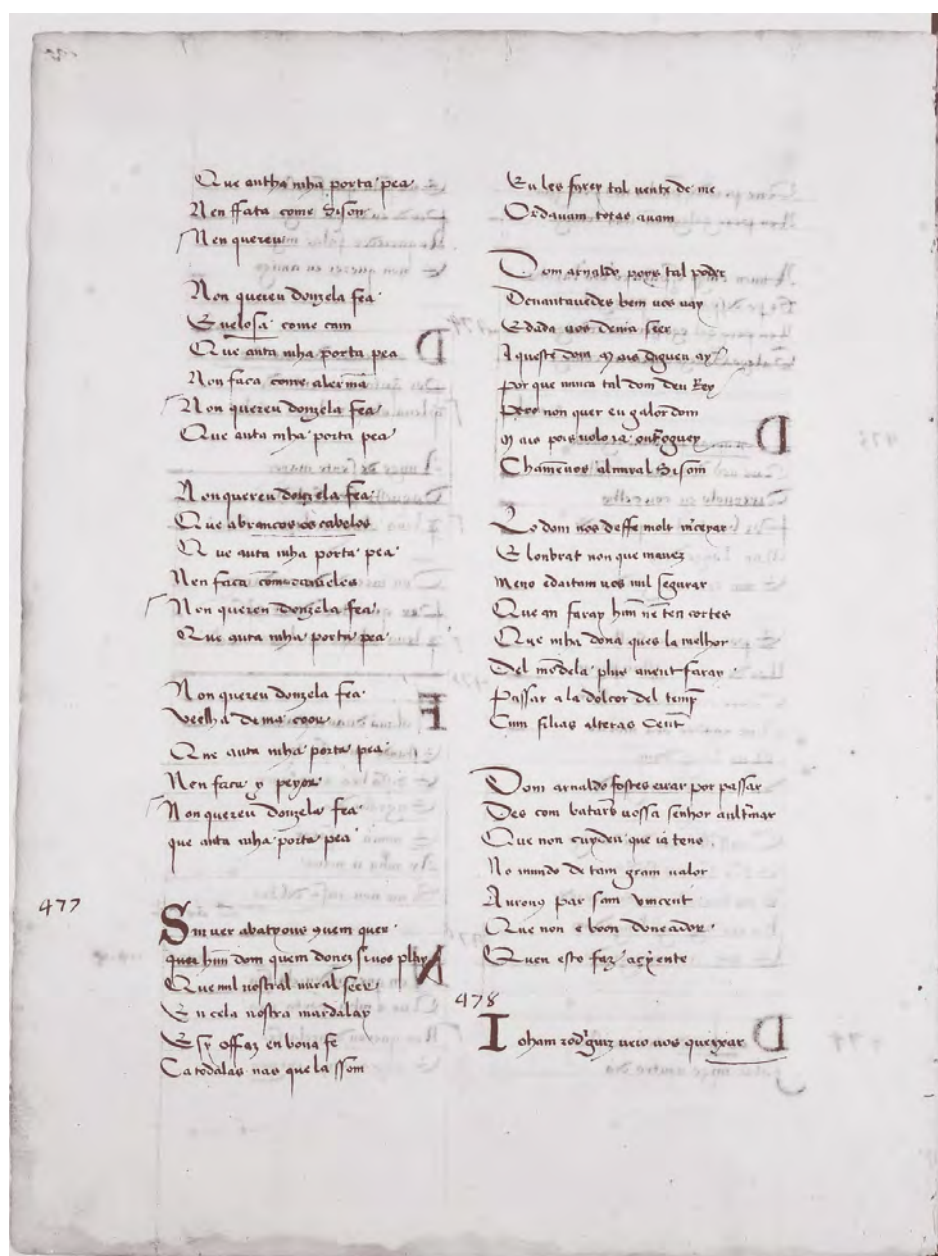 Que antha mha porta pea
Nen ffata come dison
Nen quereu
Non quereu donzela fea
E uelosa come cam
Que anta mha porta pea
Non faca come alermã
Non quereu donzela fea
Que anta mha porta pea
Non quereu donzela fea
Que abrancos os cabelos
Que anta mha porta pea
Nen faca come camelos
Non quereu donzela fea
Que anta mha porta pea
Non quereu donzela fea
veelha de ma coor
Que anta mha porta pea
Nen faca y peyor
Non quereu donzela fea
que anta mha porta pea
477
Sinner abatyons quem quer
quer hũn dom quem donez si uos play
Que uul uostral mral seer
En cela uostra mardalay
E sy offaz en bona fe
Ca todalas nas que la ssom
Eu les farey tal uentx de me
Ordauam totas auam
Dom arnaldo poys tal poder
Deuantauedes bem uos uay
E dada uos deuia seer
Aqueste dom mais digueu ay
Por que nunca tal dom deu Rey
Pero non quer eu galordom
Mais pois uolo ia outroguey
Chamenos almiral Sisom
Lo dom uos deffe molt m̃ceyar
E lonbrat non que mauez
Meno edaitam uos uul segurar
Que an faray hũn nẽten cortes
Que mha dona ques la melhor
Del mõdela plus auent faray
Passar a la dolcor del temp
Cum filias alteras cent
Dom arnaldo fostes eirar por passar
Des com batarẽ uossa senhor aultmar
Que non cuydeu que ia tens
No mundo de tam gram ualor
Auronỹ par sam vincent
Que non e boon doneador
Quen esto faz açyente
478
Ioham rodguiz ueio uos queixar